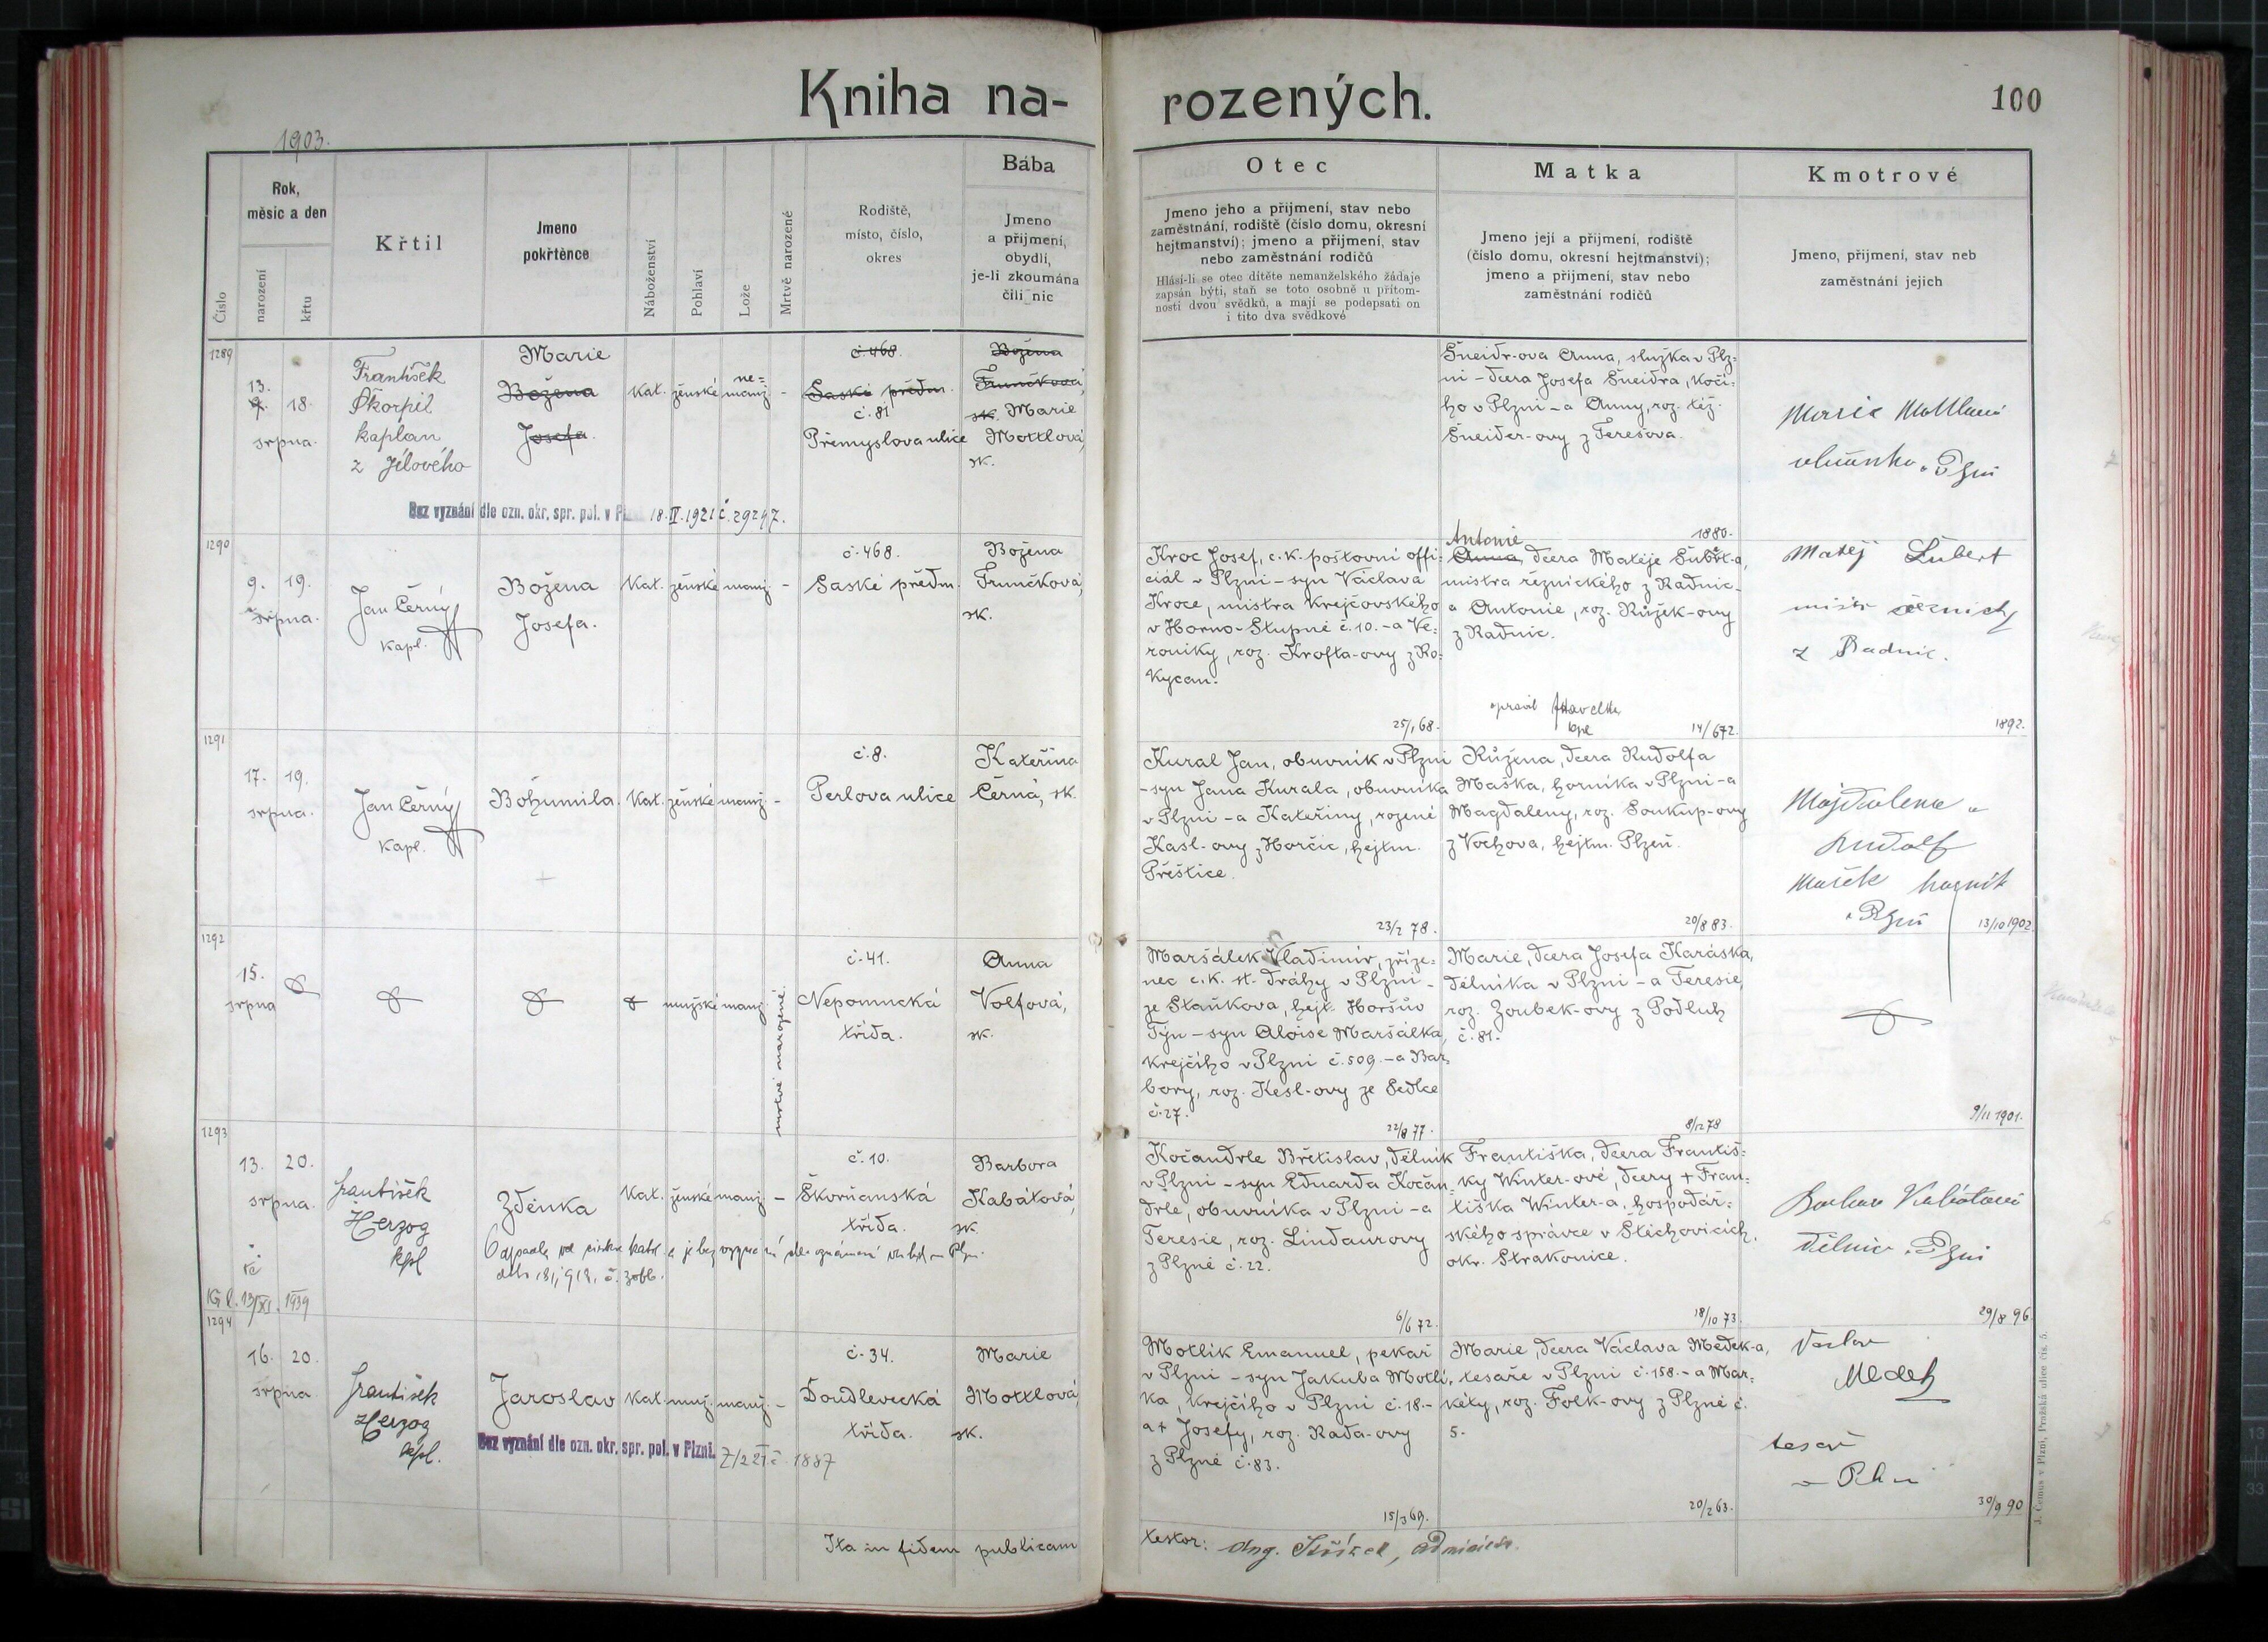 Kniha na-
rozených.
100
1903.
Číslo
Rok,
měsíc a den
narození
křtu
Křtil
Jmeno
pokřtěnce
Náboženství
Pohlaví
Lože
Mrtvě narozené
Rodiště,
místo, číslo,
okres
Bába
Jmeno
a přijmení,
obydlí,
je-li zkoumána
čili nic
Otec
Jmeno jeho a přijmení, stav nebo
zaměstnání, rodiště (číslo domu, okresní
hejtmanství); jmeno a přijmení, stav
nebo zaměstnání rodičů
Hlásí-li se otec dítěte nemanželského žádaje
zapsán býti, staň se toto osobně u přítom-
nosti dvou svědků, a mají se podepsati on
i tito dva svědkové
Matka
Jmeno její a přijmení, rodiště
(číslo domu, okresní hejtmanství);
jmeno a přijmení, stav nebo
zaměstnání rodičů
Kmotrové
Jmeno, přijmení, stav neb
zaměstnání jejich
1289
13.
9. 18.
srpna.
František
Škorpil
kaplan
z Jílového
Marie
Božena
Josefa.
Kat.
ženské
ne=
manž.
-
č. 468.
Saské předm.
č. 81
Přemyslova ulice
Božena
Frunčková,
sk. Marie
Mottlová,
sk.
Šneidr-ova Anna, služka v Plz=
ni - dcera Josefa Šneidra, kočí=
ho v Plzni - a Anny, roz. též.
Šneider-ovy z Terešova.
Marie Mottlová
Plzni
Bez vyznání dle ozn. okr. spr. pol. v Pl 18. II. 1921 č. 29297.
1290
9. 19.
srpna.
Jan Černý
Kapl.
Božena
Josefa.
Kat. ženské manž. -
č. 468.
Saské předm.
Božena
Frunčková,
sk.
Kroc Josef, c. k. poštovní offi=
ciál v Plzni - syn Václava
Kroce, mistra krejčovského
v Horno-Stupně č. 10. - a Ve=
roniky, roz. Krofta-ovy z Ro=
kycan.
25/1 68.
Antonie 1880.
Anna, dcera Matěje Šubrt-a,
mistra řeznického z Radnic -
a Antonie, roz. Růžek-ovy
z Radnic.
opravil Havelka
kpl
14/6 72.
Matěj Šubert
mistr řeznický
z Radnic.
1892.
1291
17. 19.
srpna.
Jan Černý
Kapl.
Bohumila.
Kat. ženské manž. -
č. 8.
Perlova ulice
Kateřina
Černá, sk.
Kural Jan, obuvník v Plzni
- syn Jana Kurala, obuvníka
v Plzni - a Kateřiny, rozené
Kasl-ovy z Horčic, hejtm.
Přeštice.
23/2 78.
Růžena, dcera Rudolfa
Maška, horníka v Plzni - a
Magdaleny, roz. Soukup-ovy
z Vochova, hejtm. Plzeň.
20/8 83.
Majdalena a
Rudolf
Mašek horník
v Plzni
13/10 1902.
1292
15.
srpna
mužské manž.
mrtvě narozené.
č. 41.
Nepomucká
třída.
Anna
Volfová,
sk.
Maršálek Vladimír, zříze=
nec c. k. st. dráhy v Plzni -
ze Staňkova, hejt. Horšův
Týn - syn Aloise Maršálka,
krejčího v Plzni č. 509. - a Bar=
bory, roz. Kesl-ovy ze Sedlce
č. 27.
22/8 77.
Marie, dcera Josefa Karáska,
dělníka v Plzni - a Teresie,
roz. Zoubek-ovy z Podluh
č. 81.
8/12 78
9/11 1901.
1293
13. 20.
srpna.
František
Herzog
kpl
Zdeňka
Kat. ženské manž. -
č. 10.
Škorňanská
třída.
Barbora
Kabátová,
sk.
13/XI. 1939
Kočandrle Břetislav, dělník
v Plzni - syn Eduarda Kočan=
drle, obuvníka v Plzni - a
Teresie, roz. Lindaurovy
z Plzně č. 22.
6/6 72.
Františka, dcera Františ=
ky Winter-ové, dcery + Fran=
tiška Winter-a, hospodář=
ského správce v Štěchovicích,
okr. Strakonice.
18/10 73.
Barbora Kabátová
dělnice v Plzni
29/8 96.
1294
16. 20.
srpna
František
Herzog
kpl.
Jaroslav
Kat. muž. manž. -
č. 34.
Doudlevecká
třída.
Marie
Mottlová,
sk.
Bez vyznání dle ozn. okr. spr. pol. v Plzni.
1887
Motlík Emanuel, pekař
v Plzni - syn Jakuba Motlí=
ka, krejčího v Plzni č. 18. -
a + Josefy, roz. Rada-ovy
z Plzně č. 83.
15/3 69.
Marie, dcera Václava Medek-a,
tesaře v Plzni č. 158. - a Mar=
kéty, roz. Folk-ovy z Plzně č.
5.
20/2 63.
Václav
Medek
tesař
v Plzni
30/9 90
Ita in fidem publicam
testor: Aug.
J. Černus v Plzni, Pražská ulice čís. 5.